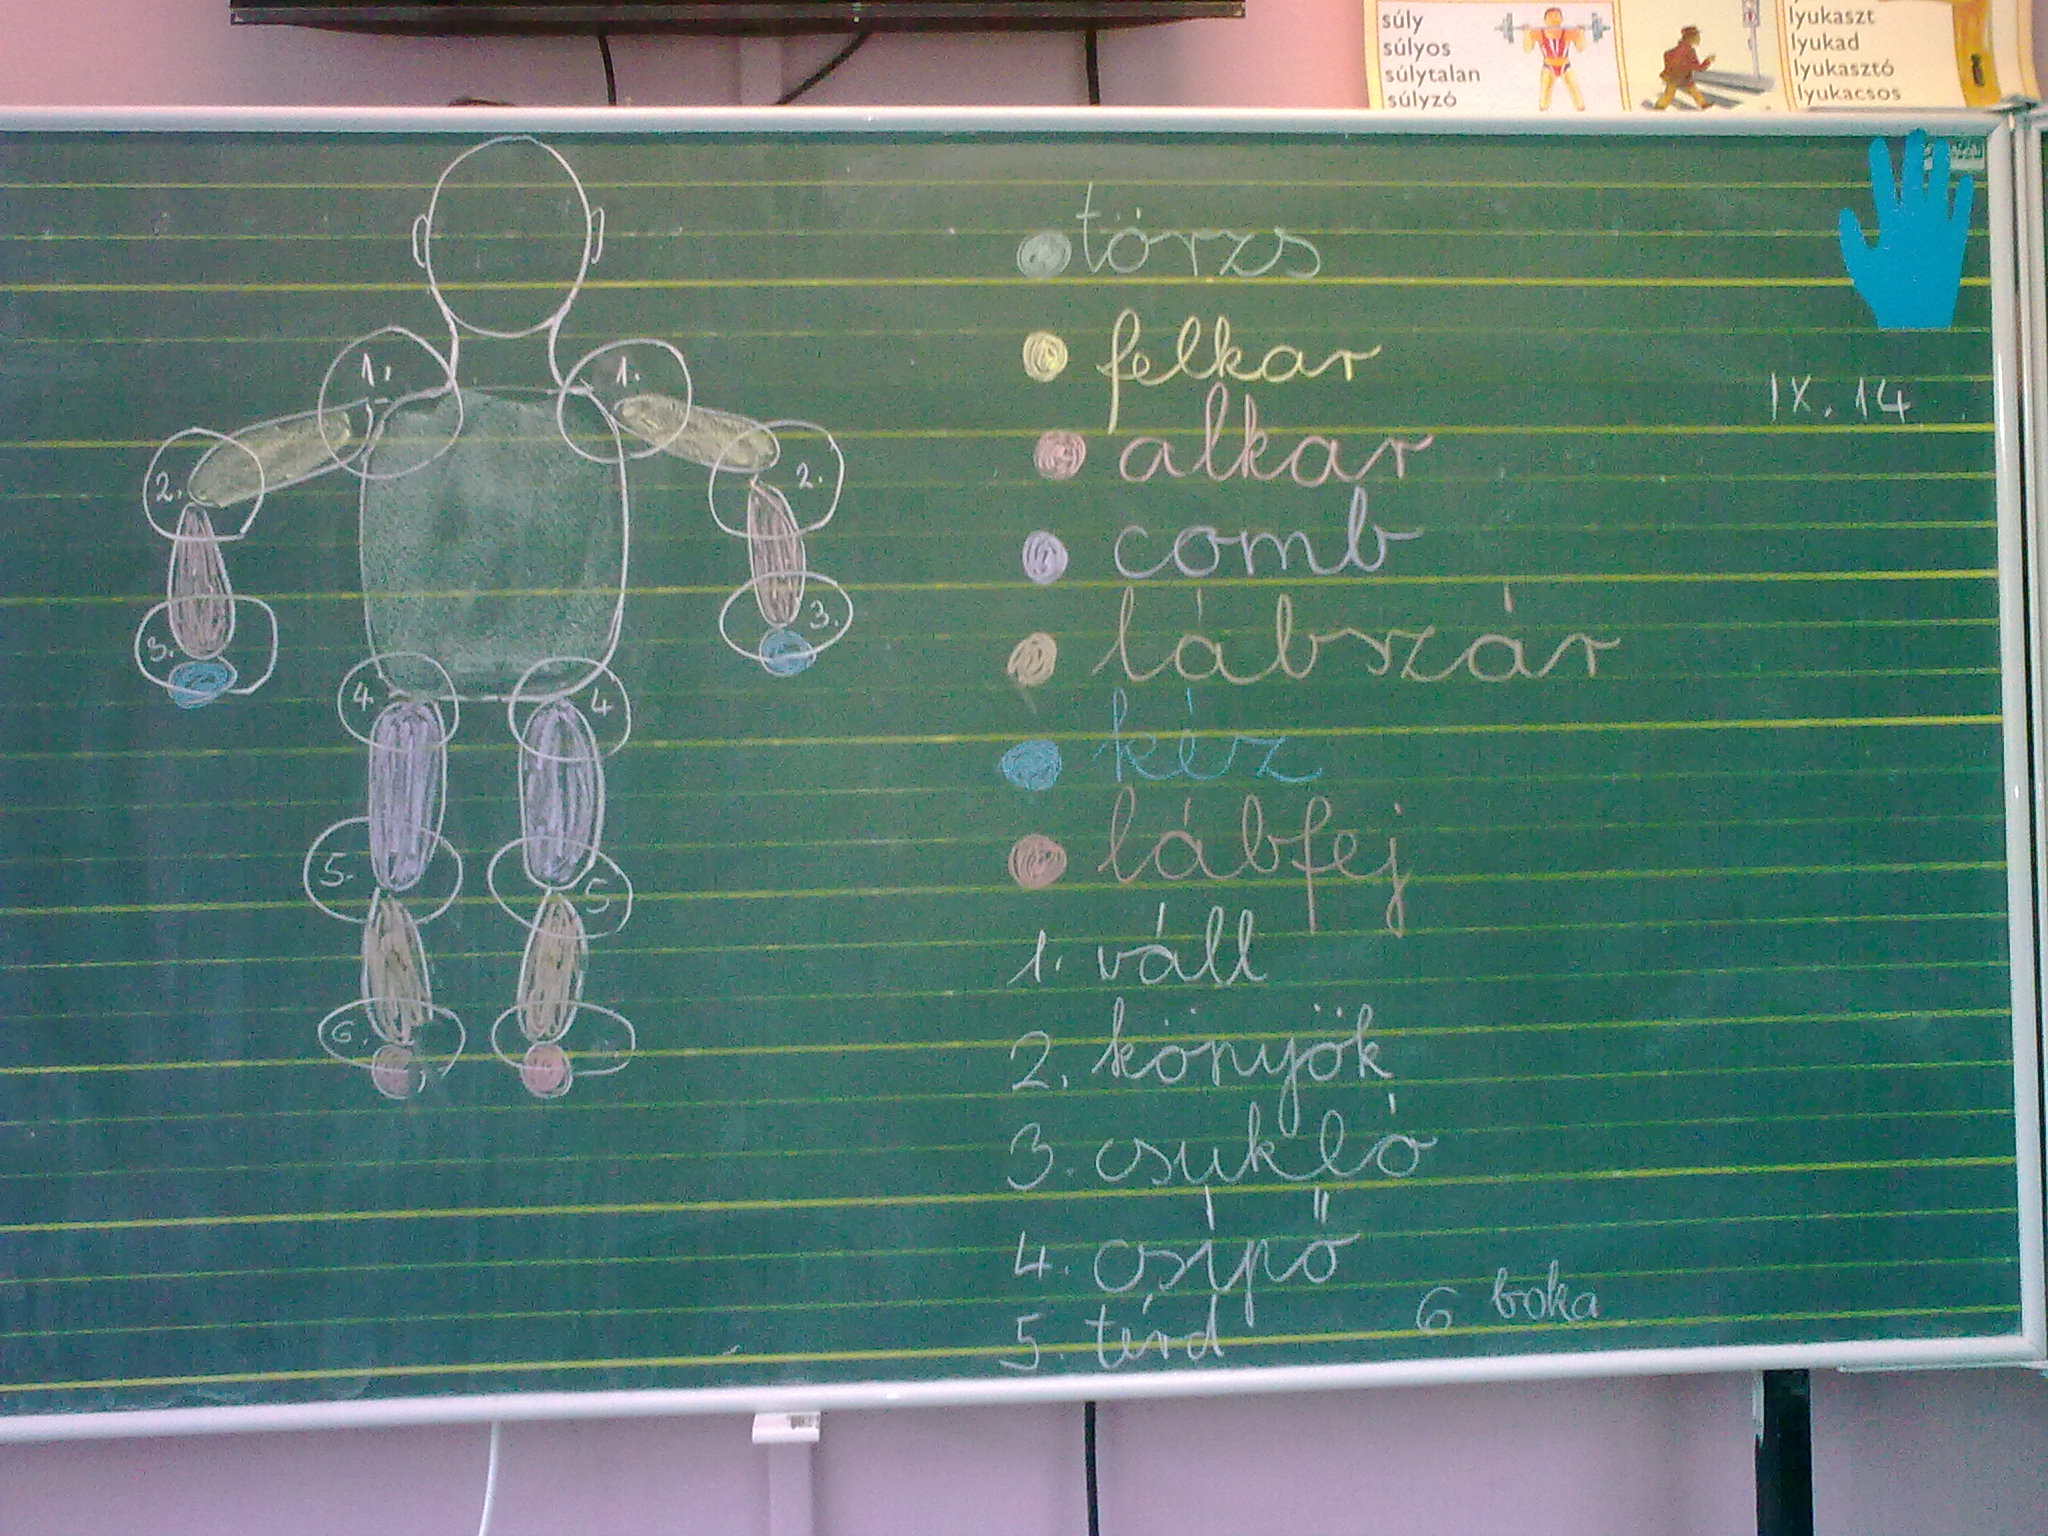 súly
súlyos
súlytalan
súlyzó
lyukaszt
lyukad
lyukasztó
lyukacsos
törzs
felkar
alkar
comb
lábszár
kéz
lábfej
1. váll
2. könyök
3. csukló
4. csípő
5. térd
6 boka
IX. 14
1.
1.
2.
2.
3.
3.
4.
4
5.
5
6.